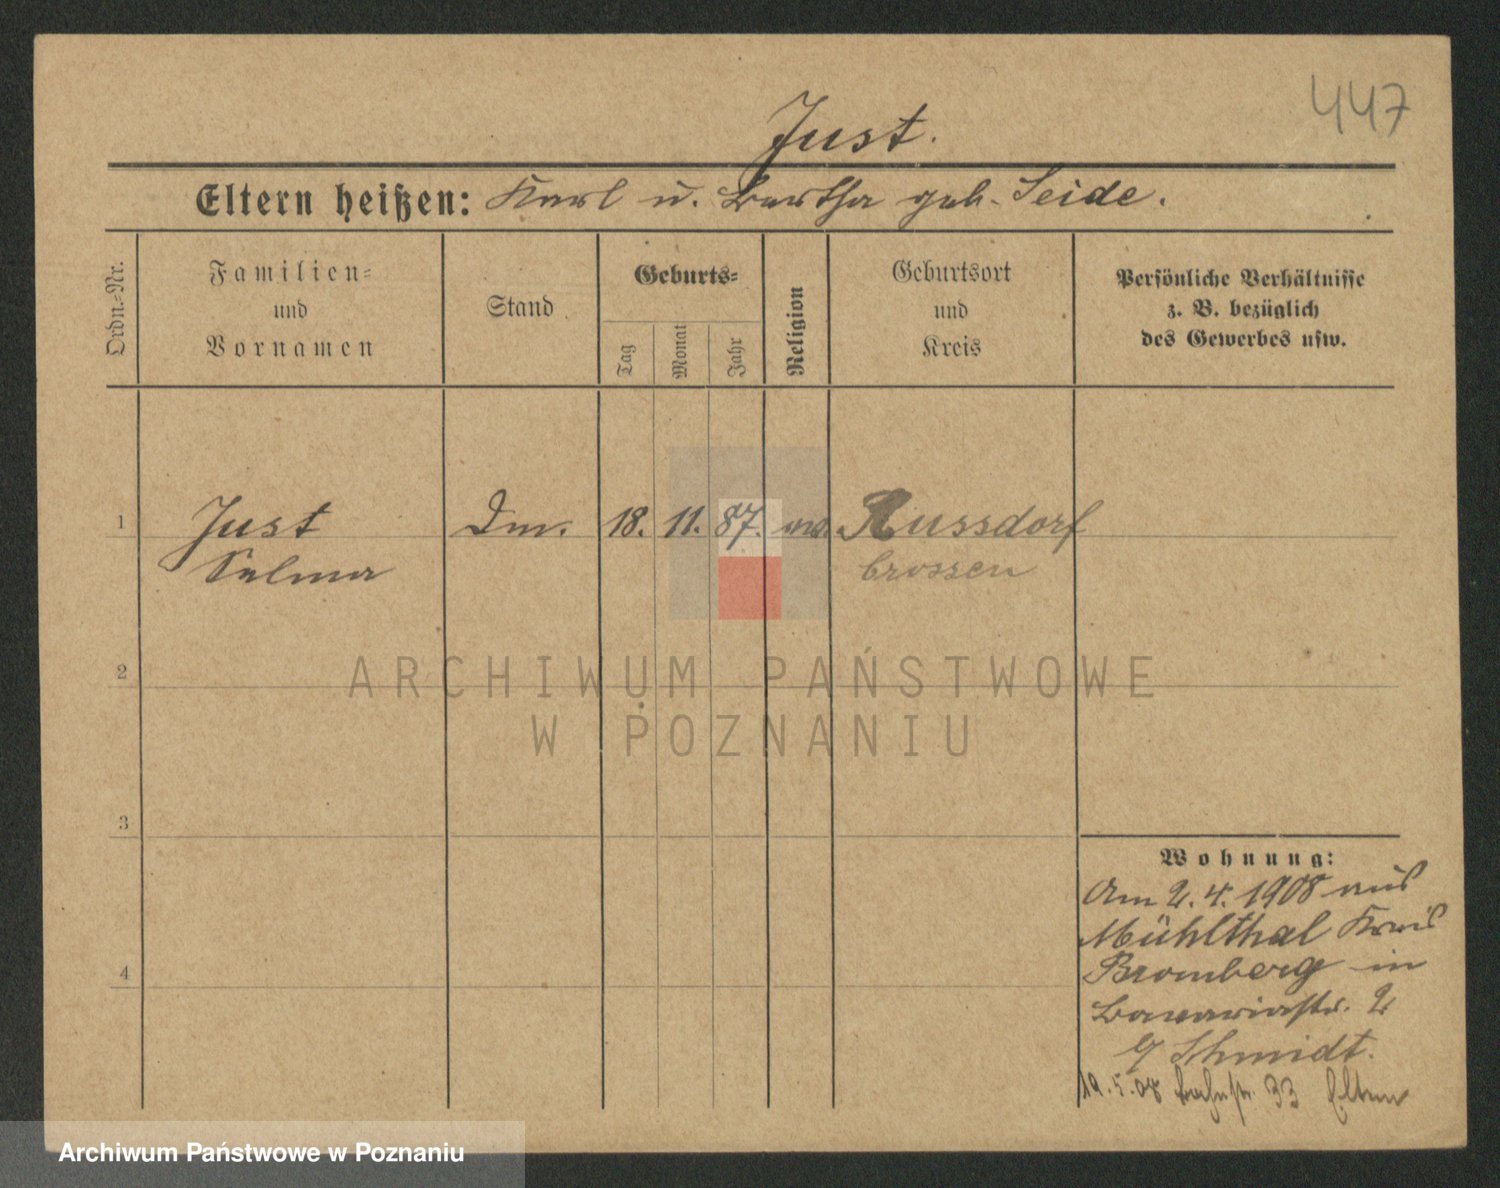 447
Just.
Eltern heißen: Karl u. Bertha geb. Seide.
Ordn.-Nr.
Familien-
und
Vornamen
Stand
Geburts-
Tag
Monat
Jahr
Religion
Geburtsort
und
Kreis
Persönliche Verhältnisse
z. B. bezüglich
des Gewerbes usw.
1 Just 18. 11. 87. Russdorf
Selma Crossen
2
ARCHIWUM PAŃSTWOWE
W POZNANIU
3
4
Wohnung:
Am 2. 4. 1908 aus
Mühlthal Kreis
Bromberg in
Bavariastr. 2
Schmidt.
19. 5. 08 33 Eltern
Archiwum Państwowe w Poznaniu